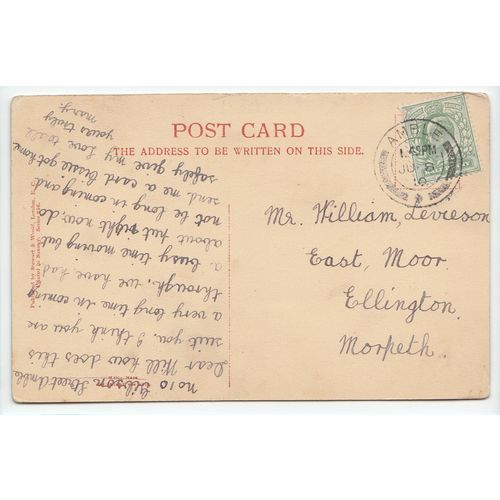 POST CARD
THE ADDRESS TO BE WRITTEN ON THIS SIDE.
AMBLE
1.45PM
JU
Mr. William, Levieson
East, Moor
Ellington,
Morpeth.
no 10 Gibson Street Amble
Dear Will how does this
suit you. I think you are
a very long time in coming
through, we have had
a busy time moving but
about put right now, do
not be long in coming and
send me a card Bessie got home
safely give my
Love to all
yours truly
mary.
Published by Stewart & Woolf, London, E.C.